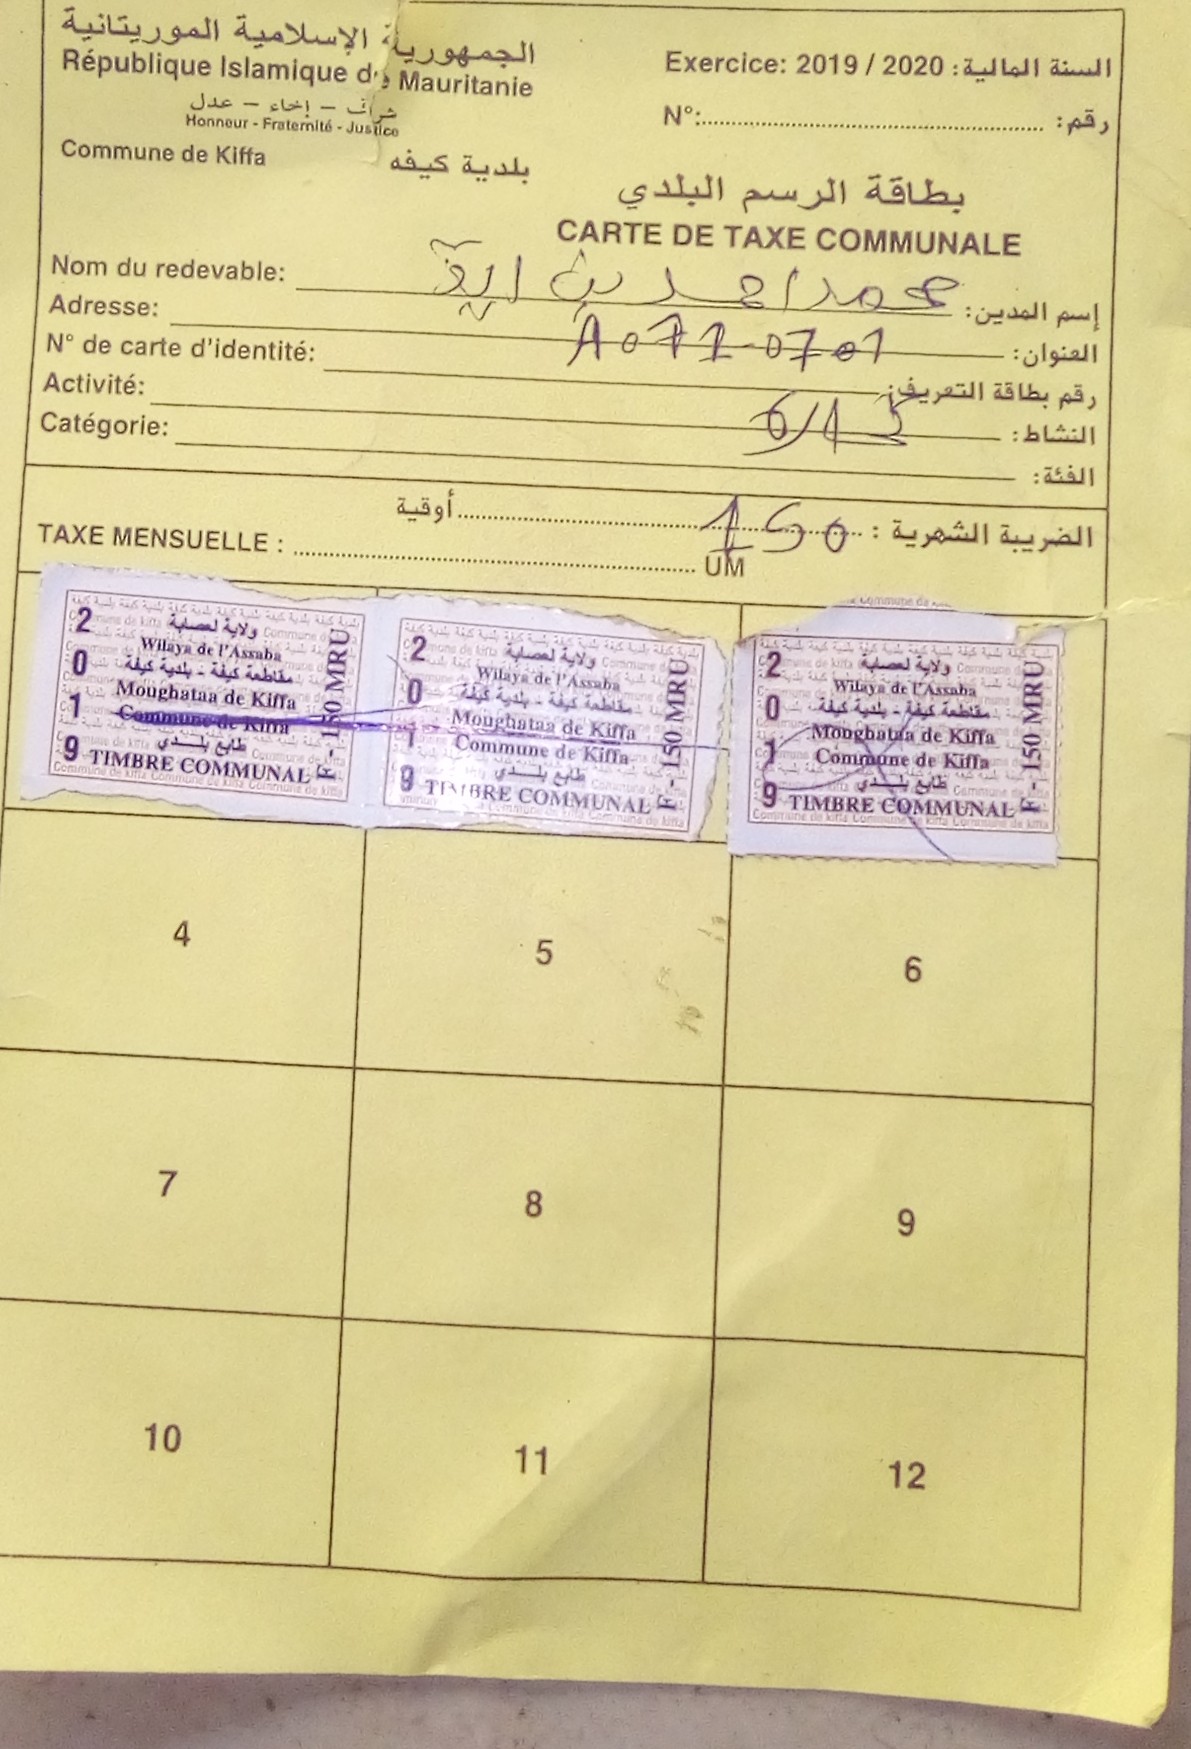 الجمهورية الإسلامية الموريتانية
République Islamique de Mauritanie
شرف - إخاء - عدل
Honneur - Fraternité - Justice
Commune de Kiffa بلدية كيفه
Exercice: 2019 / 2020 السنة المالية:
N°: رقم:
بطاقة الرسم البلدي
CARTE DE TAXE COMMUNALE
Nom du redevable: محمد احمد إسم المدين:
Adresse: A071-0701 العنوان:
N° de carte d'identité: رقم بطاقة التعريف:
Activité: النشاط:
Catégorie: الفئة:
TAXE MENSUELLE : UM
الضريبة الشهرية : 150 أوقية
2019
ولاية لعصابة
Wilaya de l'Assaba
مقاطعة كيفة - بلدية كيفة
Moughataa de Kiffa
Commune de Kiffa
طابع بلدي
TIMBRE COMMUNAL
F - 150 MRU
2019
ولاية لعصابة
Wilaya de l'Assaba
مقاطعة كيفة - بلدية كيفة
Moughataa de Kiffa
Commune de Kiffa
طابع بلدي
TIMBRE COMMUNAL
F - 150 MRU
2019
ولاية لعصابة
Wilaya de l'Assaba
مقاطعة كيفة - بلدية كيفة
Moughataa de Kiffa
Commune de Kiffa
طابع بلدي
TIMBRE COMMUNAL
F - 150 MRU
4 5 6
7 8 9
10 11 12